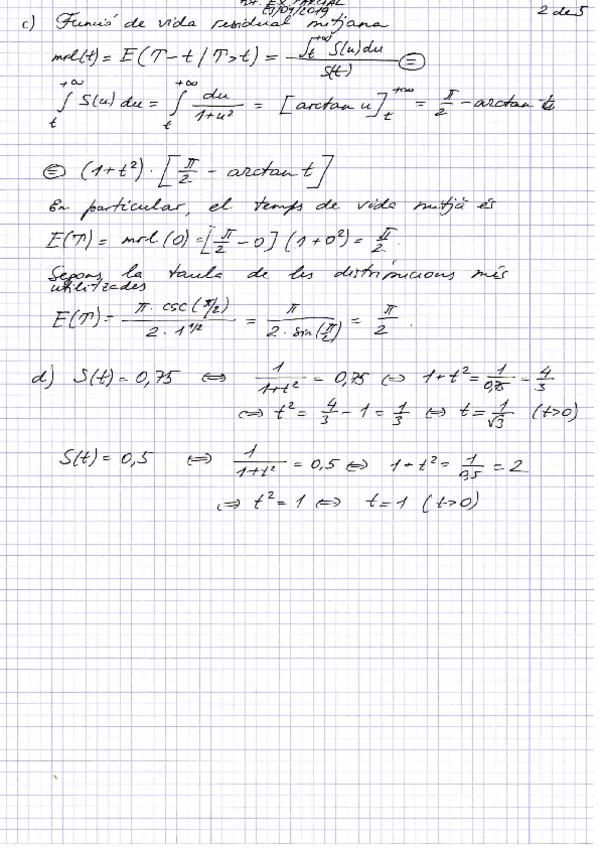 EX. PARCIAL
01/04/2019
2 de 5
c) Funció de vida residual mitjana
mrl(t) = E(T-t / T>t) = ∫_t^{+∞} S(u)du / S(t) =
∫_t^{+∞} S(u) du = ∫_t^{+∞} du / (1+u²) = [arctan u]_t^{+∞} = π/2 - arctan t
= (1+t²) · [π/2 - arctan t]
En particular, el temps de vida mitjà és
E(T) = mrl(0) = [π/2 - 0] (1+0²) = π/2.
Segons la taula de les distribucions més
utilitzades
E(T) = π · csc(π/2) / (2 · 1^{1/2}) = π / (2 · sin(π/2)) = π/2.
d) S(t) = 0,75 ⇔ 1/(1+t²) = 0,75 ⇔ 1+t² = 1/0,75 = 4/3
⇔ t² = 4/3 - 1 = 1/3 ⇔ t = 1/√3 (t>0)
S(t) = 0,5 ⇔ 1/(1+t²) = 0,5 ⇔ 1+t² = 1/0,5 = 2
⇔ t² = 1 ⇔ t = 1 (t>0)